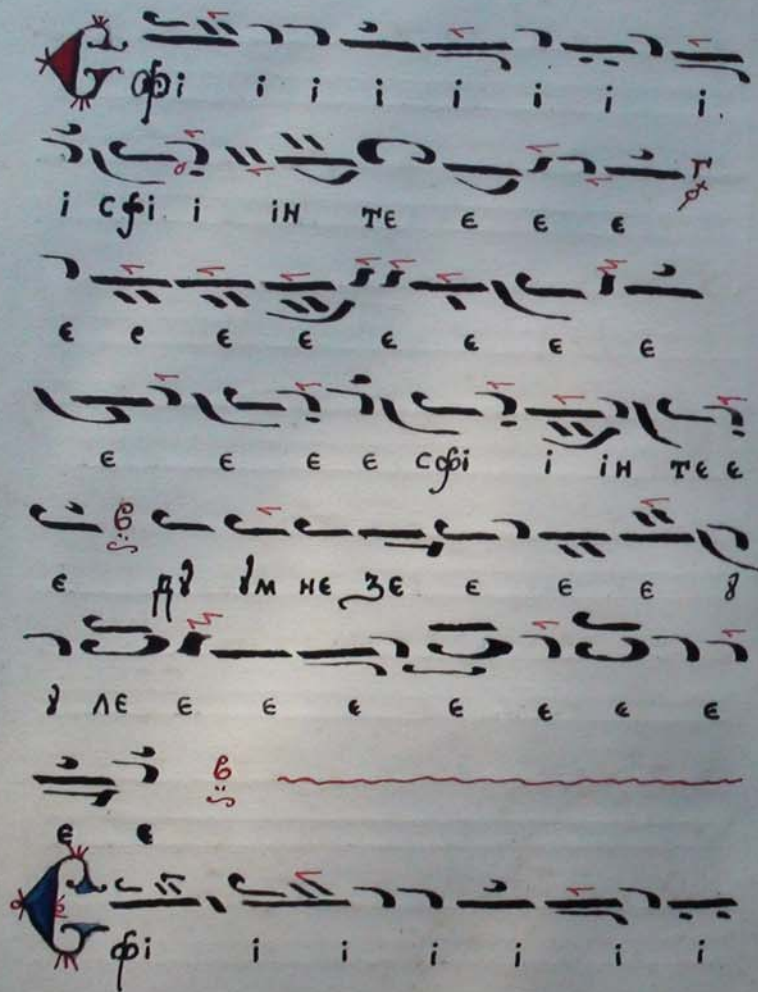 Сфі і і і і і і і
і Сфі і ін те е е е
е е е е е е е е
е е е е Сфі і ін те е
е дꙋ ꙋм не зе е е е ꙋ
ꙋ ле е е е е е е е
е е
Сфі і і і і і і